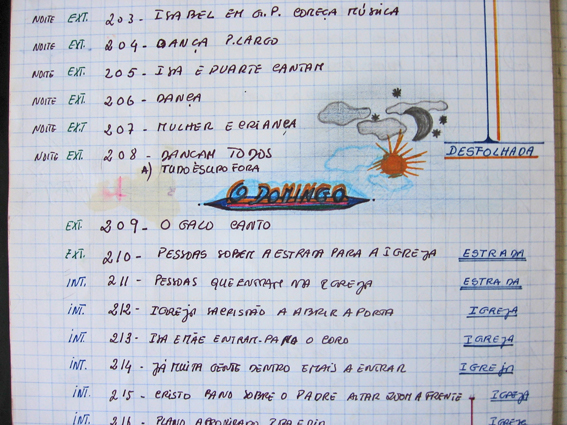 NOITE EXT. 203 - ISABEL EM G.P. COREÇA MÚSICA
NOITE EXT. 204 - DANÇA P. LARGO
NOITE EXT. 205 - ISA E DUARTE CANTAM
NOITE EXT. 206 - DANÇA
NOITE EXT 207 - MULHER E CRIANÇA
NOITE EXT. 208 - DANCAM TODOS
A) TUDO ESCURO FORA
DESFOLHADA
O DOMINGO
EXT. 209 - O GALO CANTO
EXT. 210 - PESSOAS SOBEM A ESTRADA PARA A IGREJA ESTRADA
INT. 211 - PESSOAS QUE ENTRAM NA IGREJA ESTRADA
INT. 212 - IGREJA SACRISTÃO A ABRIR A PORTA IGREJA
INT. 213 - ISA E MÃE ENTRAM PARA O CORO IGREJA
INT. 214 - JÁ MUITA GENTE DENTRO E MAIS A ENTRAR IGREJA
INT. 215 - CRISTO PANO SOBRE O PADRE ALTAR ZOOM A FRENTE - IGREJA
INT. 216 - PLANO IGREJA